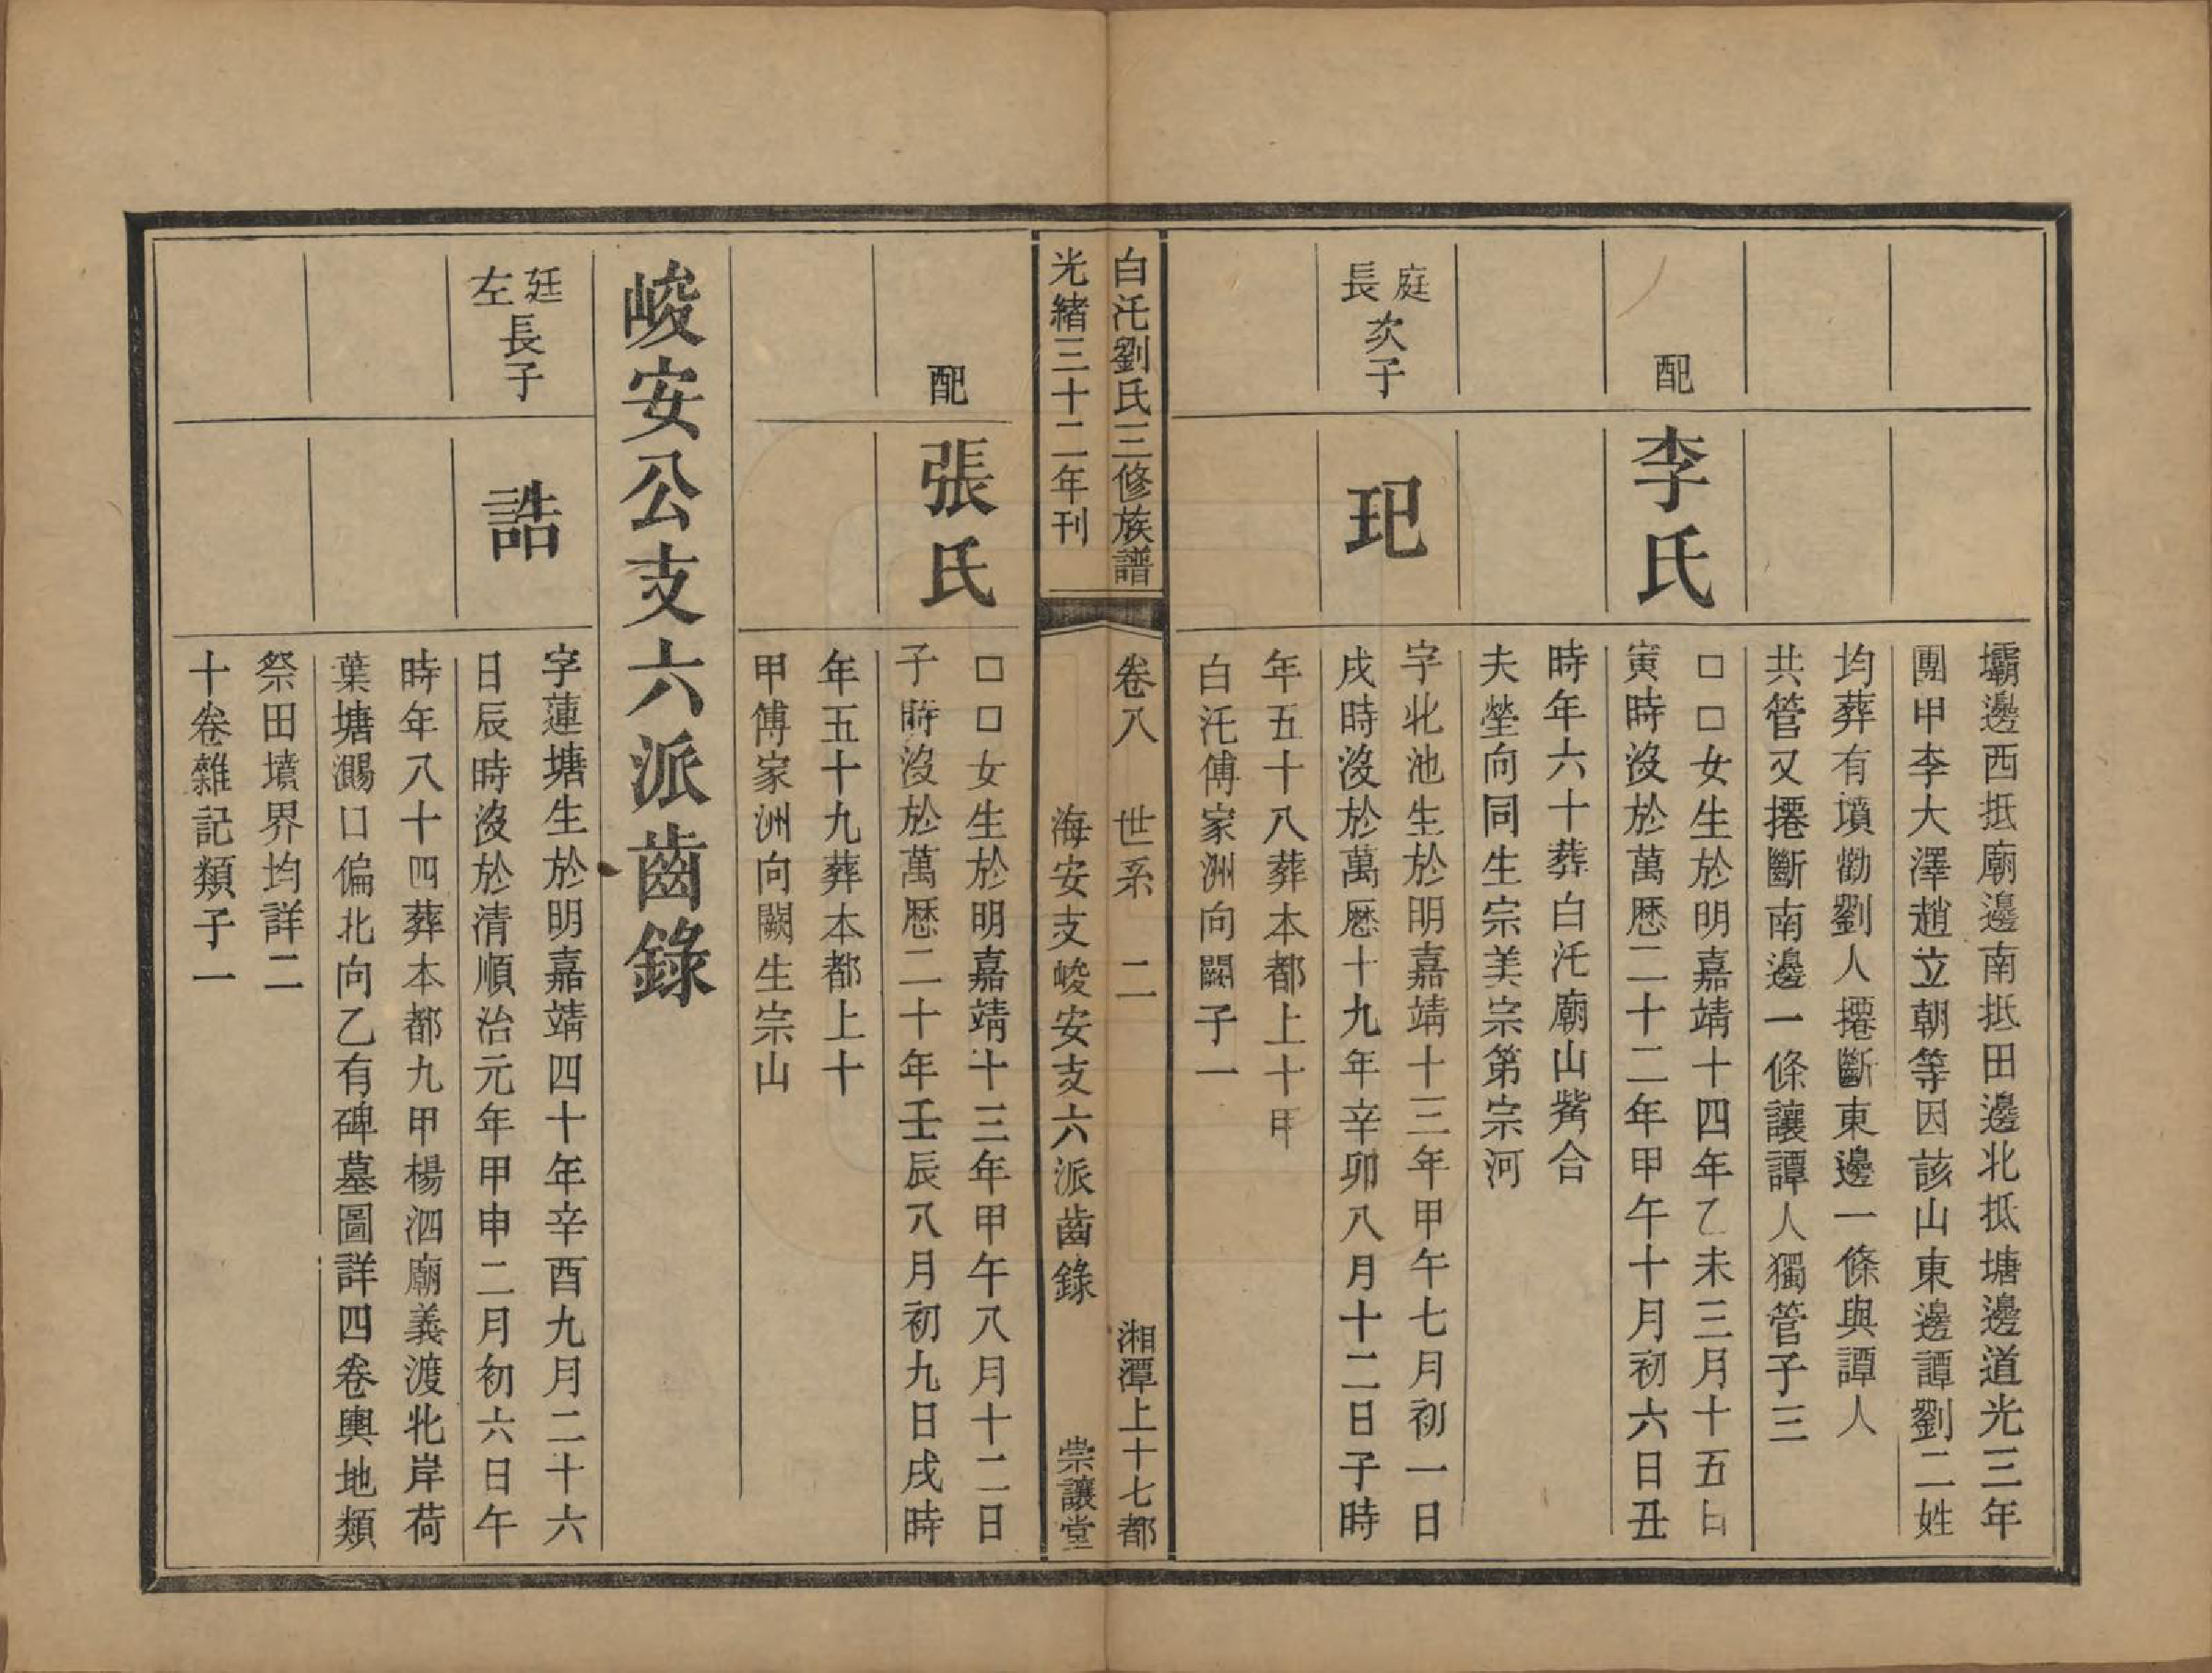 壩邊西抵廟邊南抵田邊北抵塘邊道光三年
團甲李大澤趙立朝等因該山東邊譚劉二姓
均葬有墳勸劉人撂斷東邊一條與譚人
共管又撂斷南邊一條讓譚人獨管子三
配
李氏
□□女生於明嘉靖十四年乙未三月十五日
寅時沒於萬厯二十二年甲午十月初六日丑
時年六十葬白汑廟山觜合
夫塋向同生宗美宗第宗河
庭長次子
玘
字北池生於明嘉靖十三年甲午七月初一日
戌時沒於萬厯十九年辛卯八月十二日子時
年五十八葬本都上十甲
白汑傅家洲向闕子一
白汑劉氏三修族譜
卷八 世系 二
湘潭上十七都
光緒三十二年刊
海安支峻安支六派齒錄
崇讓堂
配
張氏
□□女生於明嘉靖十三年甲午八月十二日
子時沒於萬厯二十年壬辰八月初九日戌時
年五十九葬本都上十
甲傅家洲向闕生宗山
峻安公支六派齒錄
廷左長子
誥
字蓮塘生於明嘉靖四十年辛酉九月二十六
日辰時沒於清順治元年甲申二月初六日午
時年八十四葬本都九甲楊泗廟義渡北岸荷
葉塘瀃口偏北向乙有碑墓圖詳四卷輿地類
祭田墳界均詳二
十卷雜記類子一